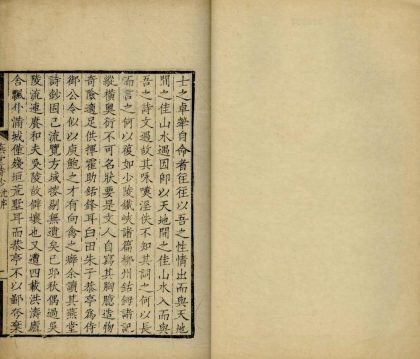 士之卓犖自命者往往以吾之性情出而與天地
間之佳山水遇因即以天地間之佳山水入而與
吾之詩文遇故其咏嘆淫佚不知其詞之何以長
而言之何以復如少陵鐵峽諸篇柳州鈷鉧諸記
縱橫奧衍不可名狀要是文人自寫其胸臆造物
奇險適足供揮霍助鈷鋒耳臼田朱子恭亭為侍
御公令似以庾鮑之才有向禽之癖余讀其燕堂
詩鈔因已流覽方域搜剔無遺矣已邜秋偶過吳
陵流連賡和夫吳陵故僻壤也又遭四載洪濤廬
舍飄朴備城僅繞垣荒墅耳而恭亭不以鄙夯棄